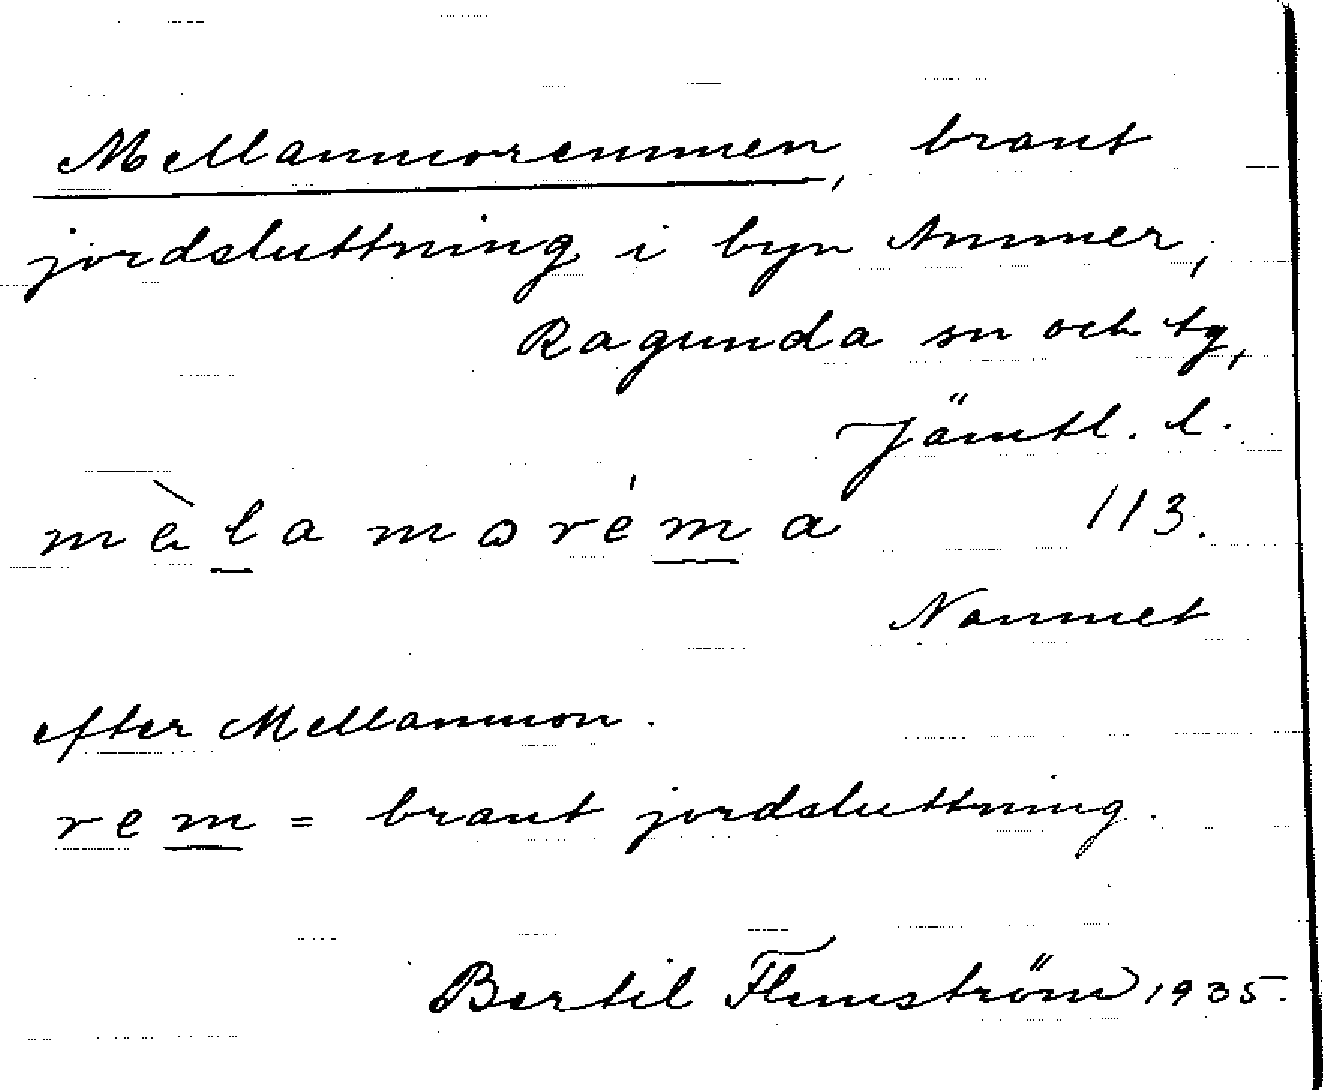 Mellanmoremmen, brant
jordsluttning i byn Ammer,
Ragunda sn och tg,
Jämtl. l.
mèlamoréma 113.
Namnet
efter Mellanmon.
rem = brant jordsluttning.
Bertil Flemström 1935.